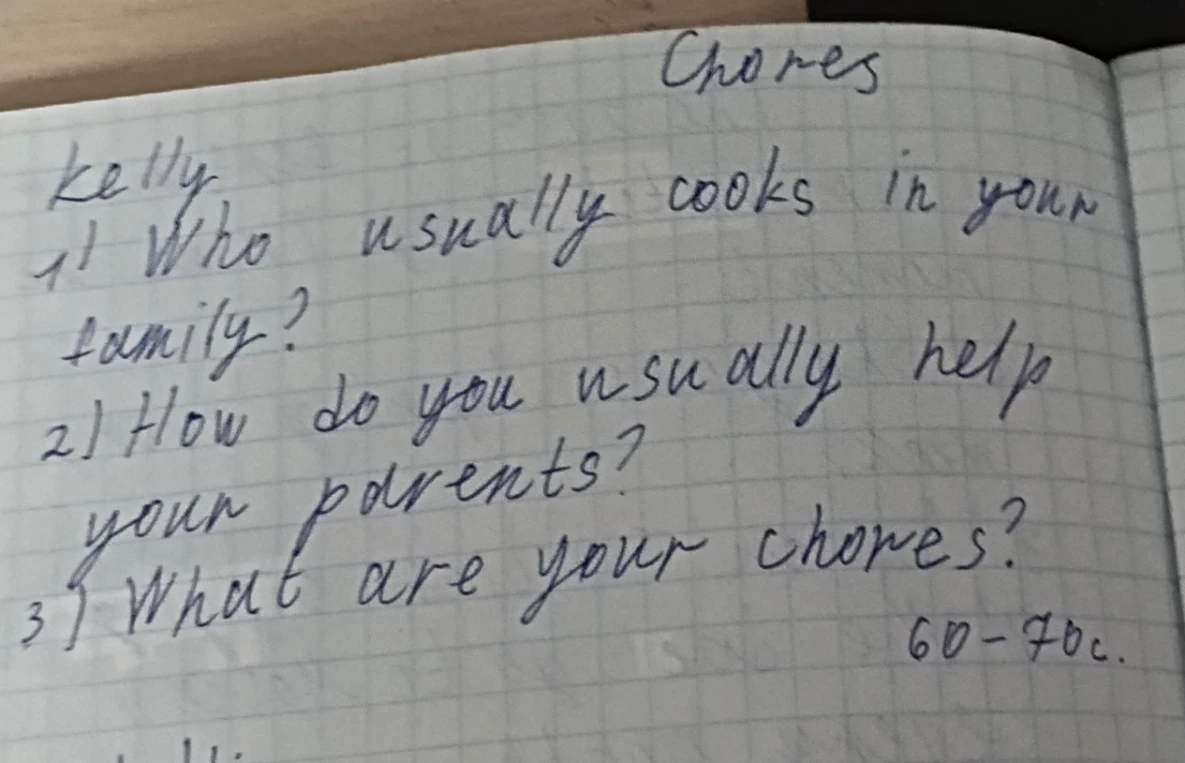 Chores
Kelly
1) Who usually cooks in your
family?
2) How do you usually help
your parents?
3) What are your chores?
60-70с.